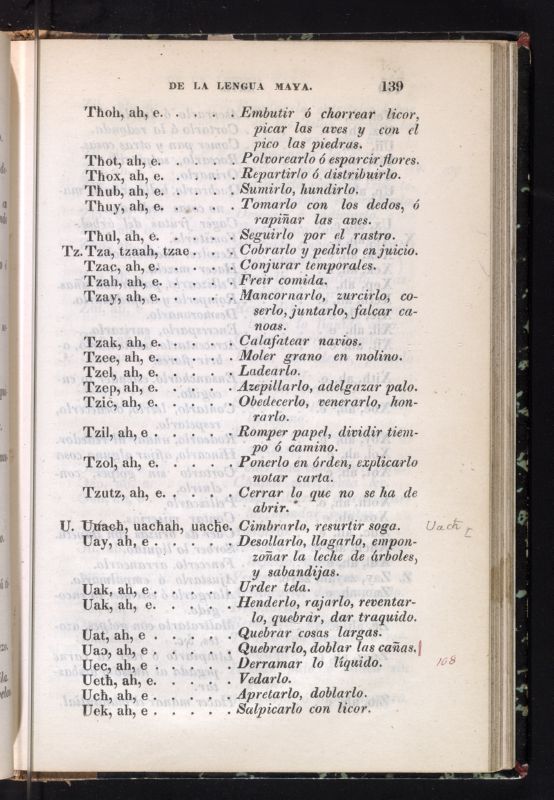 DE LA LENGUA MAYA. 139
Thoh, ah, e. . . . . . Embutir ó chorrear licor,
picar las aves y con el
pico las piedras.
Thot, ah, e. . . . . Polvorearlo ó esparcir flores.
Thox, ah, e. . . . . Repartirlo ó distribuirlo.
Thub, ah, e. . . . . Sumirlo, hundirlo.
Thuy, ah, e. . . . . Tomarlo con los dedos, ó
rapiñar las aves.
Thul, ah, e. . . . . Seguirlo por el rastro.
Tz. Tza, tzaah, tzae . . . Cobrarlo y pedirlo en juicio.
Tzac, ah, e. . . . . Conjurar temporales.
Tzah, ah, e. . . . . Freir comida.
Tzay, ah, e. . . . . Mancornarlo, zurcirlo, co-
serlo, juntarlo, falcar ca-
noas.
Tzak, ah, e. . . . . Calafatear navios.
Tzee, ah, e. . . . . Moler grano en molino.
Tzel, ah, e. . . . . Ladearlo.
Tzep, ah, e. . . . . Azepillarlo, adelgazar palo.
Tzic, ah, e. . . . . Obedecerlo, venerarlo, hon-
rarlo.
Tzil, ah, e . . . . . Romper papel, dividir tiem-
po ó camino.
Tzol, ah, e. . . . . Ponerlo en órden, explicarlo
notar carta.
Tzutz, ah, e. . . . . Cerrar lo que no se ha de
abrir.
U. Uuach, uachah, uache. Cimbrarlo, resurtir soga. Uach
Uay, ah, e . . . . . Desollarlo, llagarlo, empon-
zoñar la leche de árboles,
y sabandijas.
Uak, ah, e . . . . . Urder tela.
Uak, ah, e. . . . . Henderlo, rajarlo, reventar-
lo, quebrar, dar traquido.
Uat, ah, e . . . . . Quebrar cosas largas.
Uaɔ, ah, e . . . . . Quebrarlo, doblar las cañas.
Uec, ah, e . . . . . Derramar lo líquido. 168
Ueth, ah, e. . . . . Vedarlo.
Uch, ah, e . . . . . Apretarlo, doblarlo.
Uek, ah, e . . . . . Salpicarlo con licor.